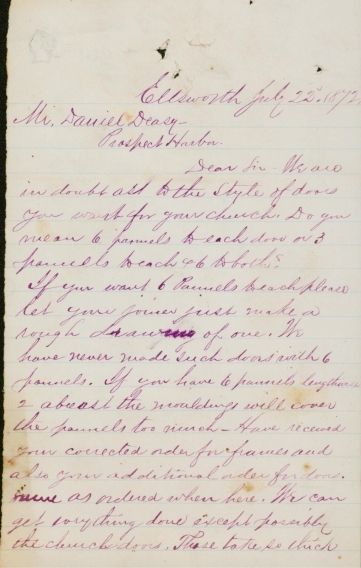 Ellsworth July 22d. 1872
Mr. Daniel Deasy-
Prospect Harbor.
Dear Sir - We are
in doubt as to the style of doors
you want for your church. Do you
mean 6 pannels to each door or 3
pannels to each & 6 to both?
If you want 6 Pannels to each please
let your joiner just make a
rough drawing of one. We
have never made such doors with 6
pannels. If you have 6 pannels lengthwise
2 abreast the mouldings will cover
the pannels too much - Have received
your corrected order for frames and
also your additional order for doors.
as ordered when here. We can
get everything done except possibly
the church doors. Those take so thick